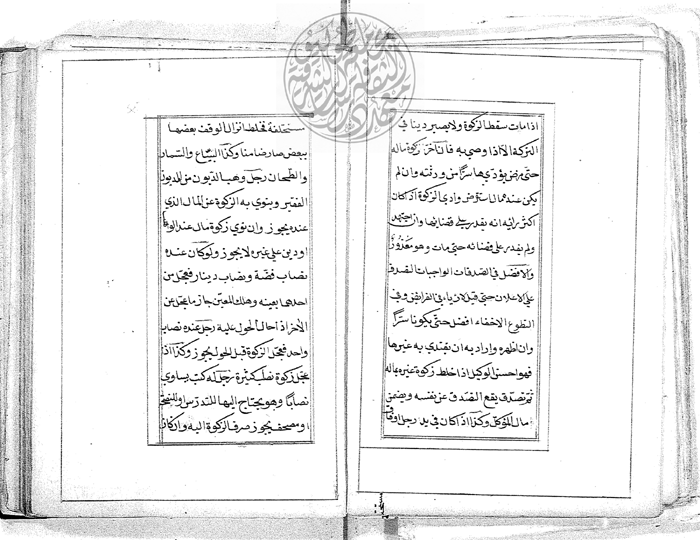 اذا مات سقط الزكوة ولا يصير دينا في
التركة الا اذا وصى به فان اخر زكوة ماله
حتى مرض يؤدي سرا من ورثته وان لم
يكن عنده مال استقرض وادي الزكوة اذا كان
اكثر رأيه انه يقدر على قضائها وان اجتهد
ولم يقدر على قضائه حتى مات وهو معذور
والافضل في الصدقات الواجبات التصدق
على الاعلان حتى قيل لا رياء في الفرائض وفي
التطوع الاخفاء افضل حتى يكون سرا
وان اظهره واراد به ان يقتدي به غيره
فهو احسن الوكيل اذا خلط زكوة غيره بماله
ثم تصدق يقع التصدق عن نفسه ويضمن
مال الموكل وكذا اذا كان في يد رجل اوقاف
مختلفة فخلط انزال الوقف بعضها
ببعض صار ضامنا وكذا البياع والسمسار
والطحان رجل وهب الديون من المديون
الفقير وينوي به الزكوة عن المال الذي
عنده يجوز وان نوى زكوة مال عند
او دين على غيره لا يجوز ولو كان عنده
نصاب فضة ونصاب دينار فعجل عن
احدهما بعينه وهلك المعين جاز ما عجل عن
الاخر اذا حال الحول عليه رجل عنده نصاب
واحد فعجل الزكوة قبل الحول يجوز وكذا اذا
عجل زكوة نصب كثيرة رجل له كتب يساوي
نصابا وهو يحتاج اليها للتدريس
او مصحف يجوز صرف الزكوة اليه وان كان